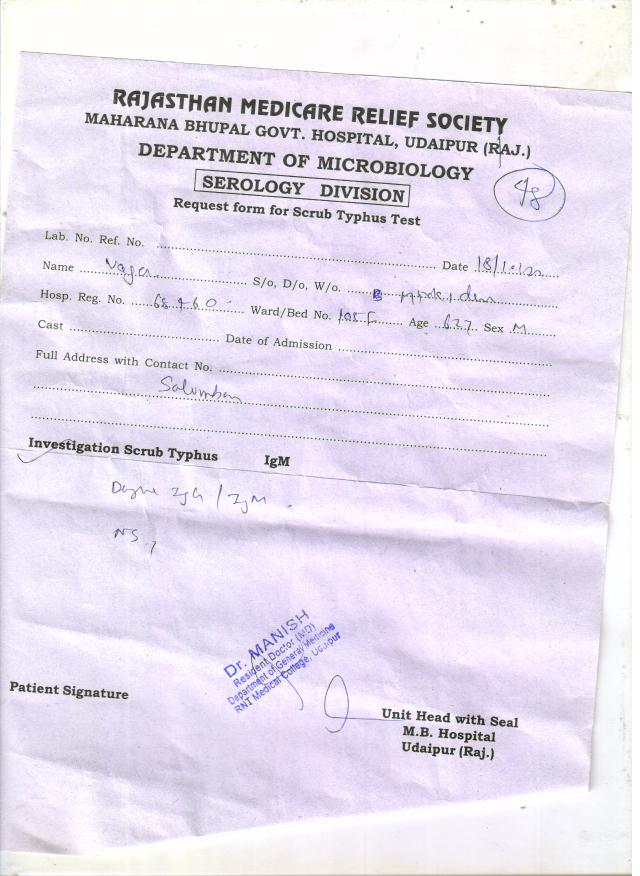 RAJASTHAN MEDICARE RELIEF SOCIETY
MAHARANA BHUPAL GOVT. HOSPITAL, UDAIPUR (RAJ.)
DEPARTMENT OF MICROBIOLOGY
SEROLOGY DIVISION
48
Request form for Scrub Typhus Test
Lab. No. Ref. No. ........ Date
Name ........ S/o, D/o, W/o. ........
Hosp. Reg. No. 68460 Ward/Bed No. ........ Age ........ Sex M
Cast ........ Date of Admission ........
Full Address with Contact No. ........
Salumbar
Investigation Scrub Typhus IgM
Dengue IgG / IgM
NS1
Dr. MANISH
Resident Doctor (MD)
Department of General Medicine
RNT Medical College, Udaipur
Patient Signature
Unit Head with Seal
M.B. Hospital
Udaipur (Raj.)